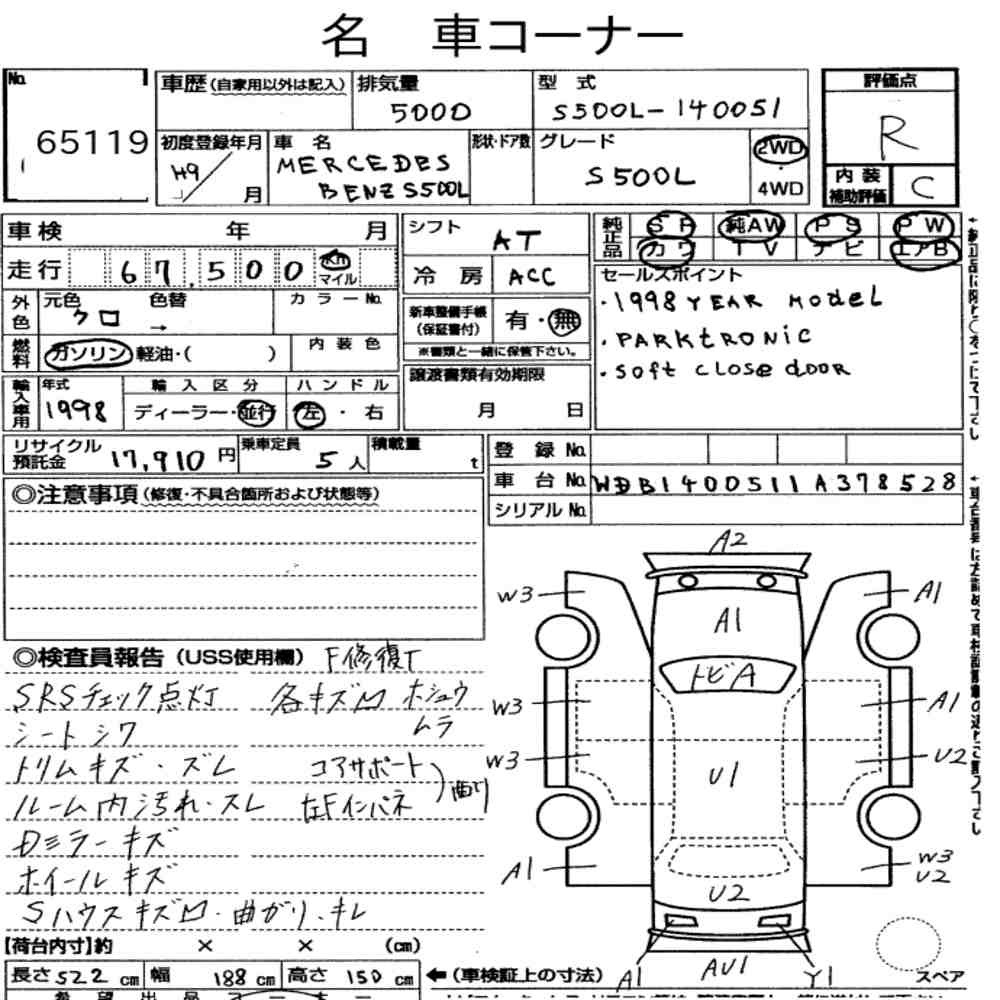 名 車コーナー
No.
65119
車歴(自家用以外は記入)
排気量
5000
型 式
S500L-140051
評価点
R
初度登録年月
H9/
月
車 名
MERCEDES
BENZ S500L
形状・ドア数
グレード
S500L
2WD
・
4WD
内 装
補助評価
C
車検 年 月
シフト
AT
純正品
SR 純AW PS PW
カワ TV ナビ エアB
走行 67,500 Km
マイル
冷 房
ACC
セールスポイント
・1998 YEAR MODEL
・PARKTRONIC
・SOFT CLOSE DOOR
外色
元色 色替
クロ →
カラーNo.
新車整備手帳
(保証書付)
有・無
※書類と一緒に保管下さい。
燃料
ガソリン 軽油・( )
内 装 色
譲渡書類有効期限
月 日
輸入車用
年式
1998
輸 入 区 分
ディーラー・並行
ハ ン ド ル
左・右
リサイクル
預託金
17,910 円
乗車定員
5 人
積載量
t
登 録 No.
車 台 No. WDB1400511A378528
シリアル No.
◎注意事項(修復・不具合箇所および状態等)
◎検査員報告(USS使用欄) F修復T
SRSチェック点灯 各キズ凹 ホシュウ
シートシワ ムラ
トリムキズ・ズレ コアサポート
ルーム内汚れ・スレ 左Fインパネ 曲り
Dミラーキズ
ホイールキズ
Sハウスキズ凹・曲がり・キレ
A2
W3
A1
A1
トビA
W3
A1
W3
U1
U2
A1
U2
W3
U2
A1
AU1
Y1
スペア
【荷台内寸】約 × × (cm)
長さ 522 cm 幅 188 cm 高さ 150 cm ←(車検証上の寸法)